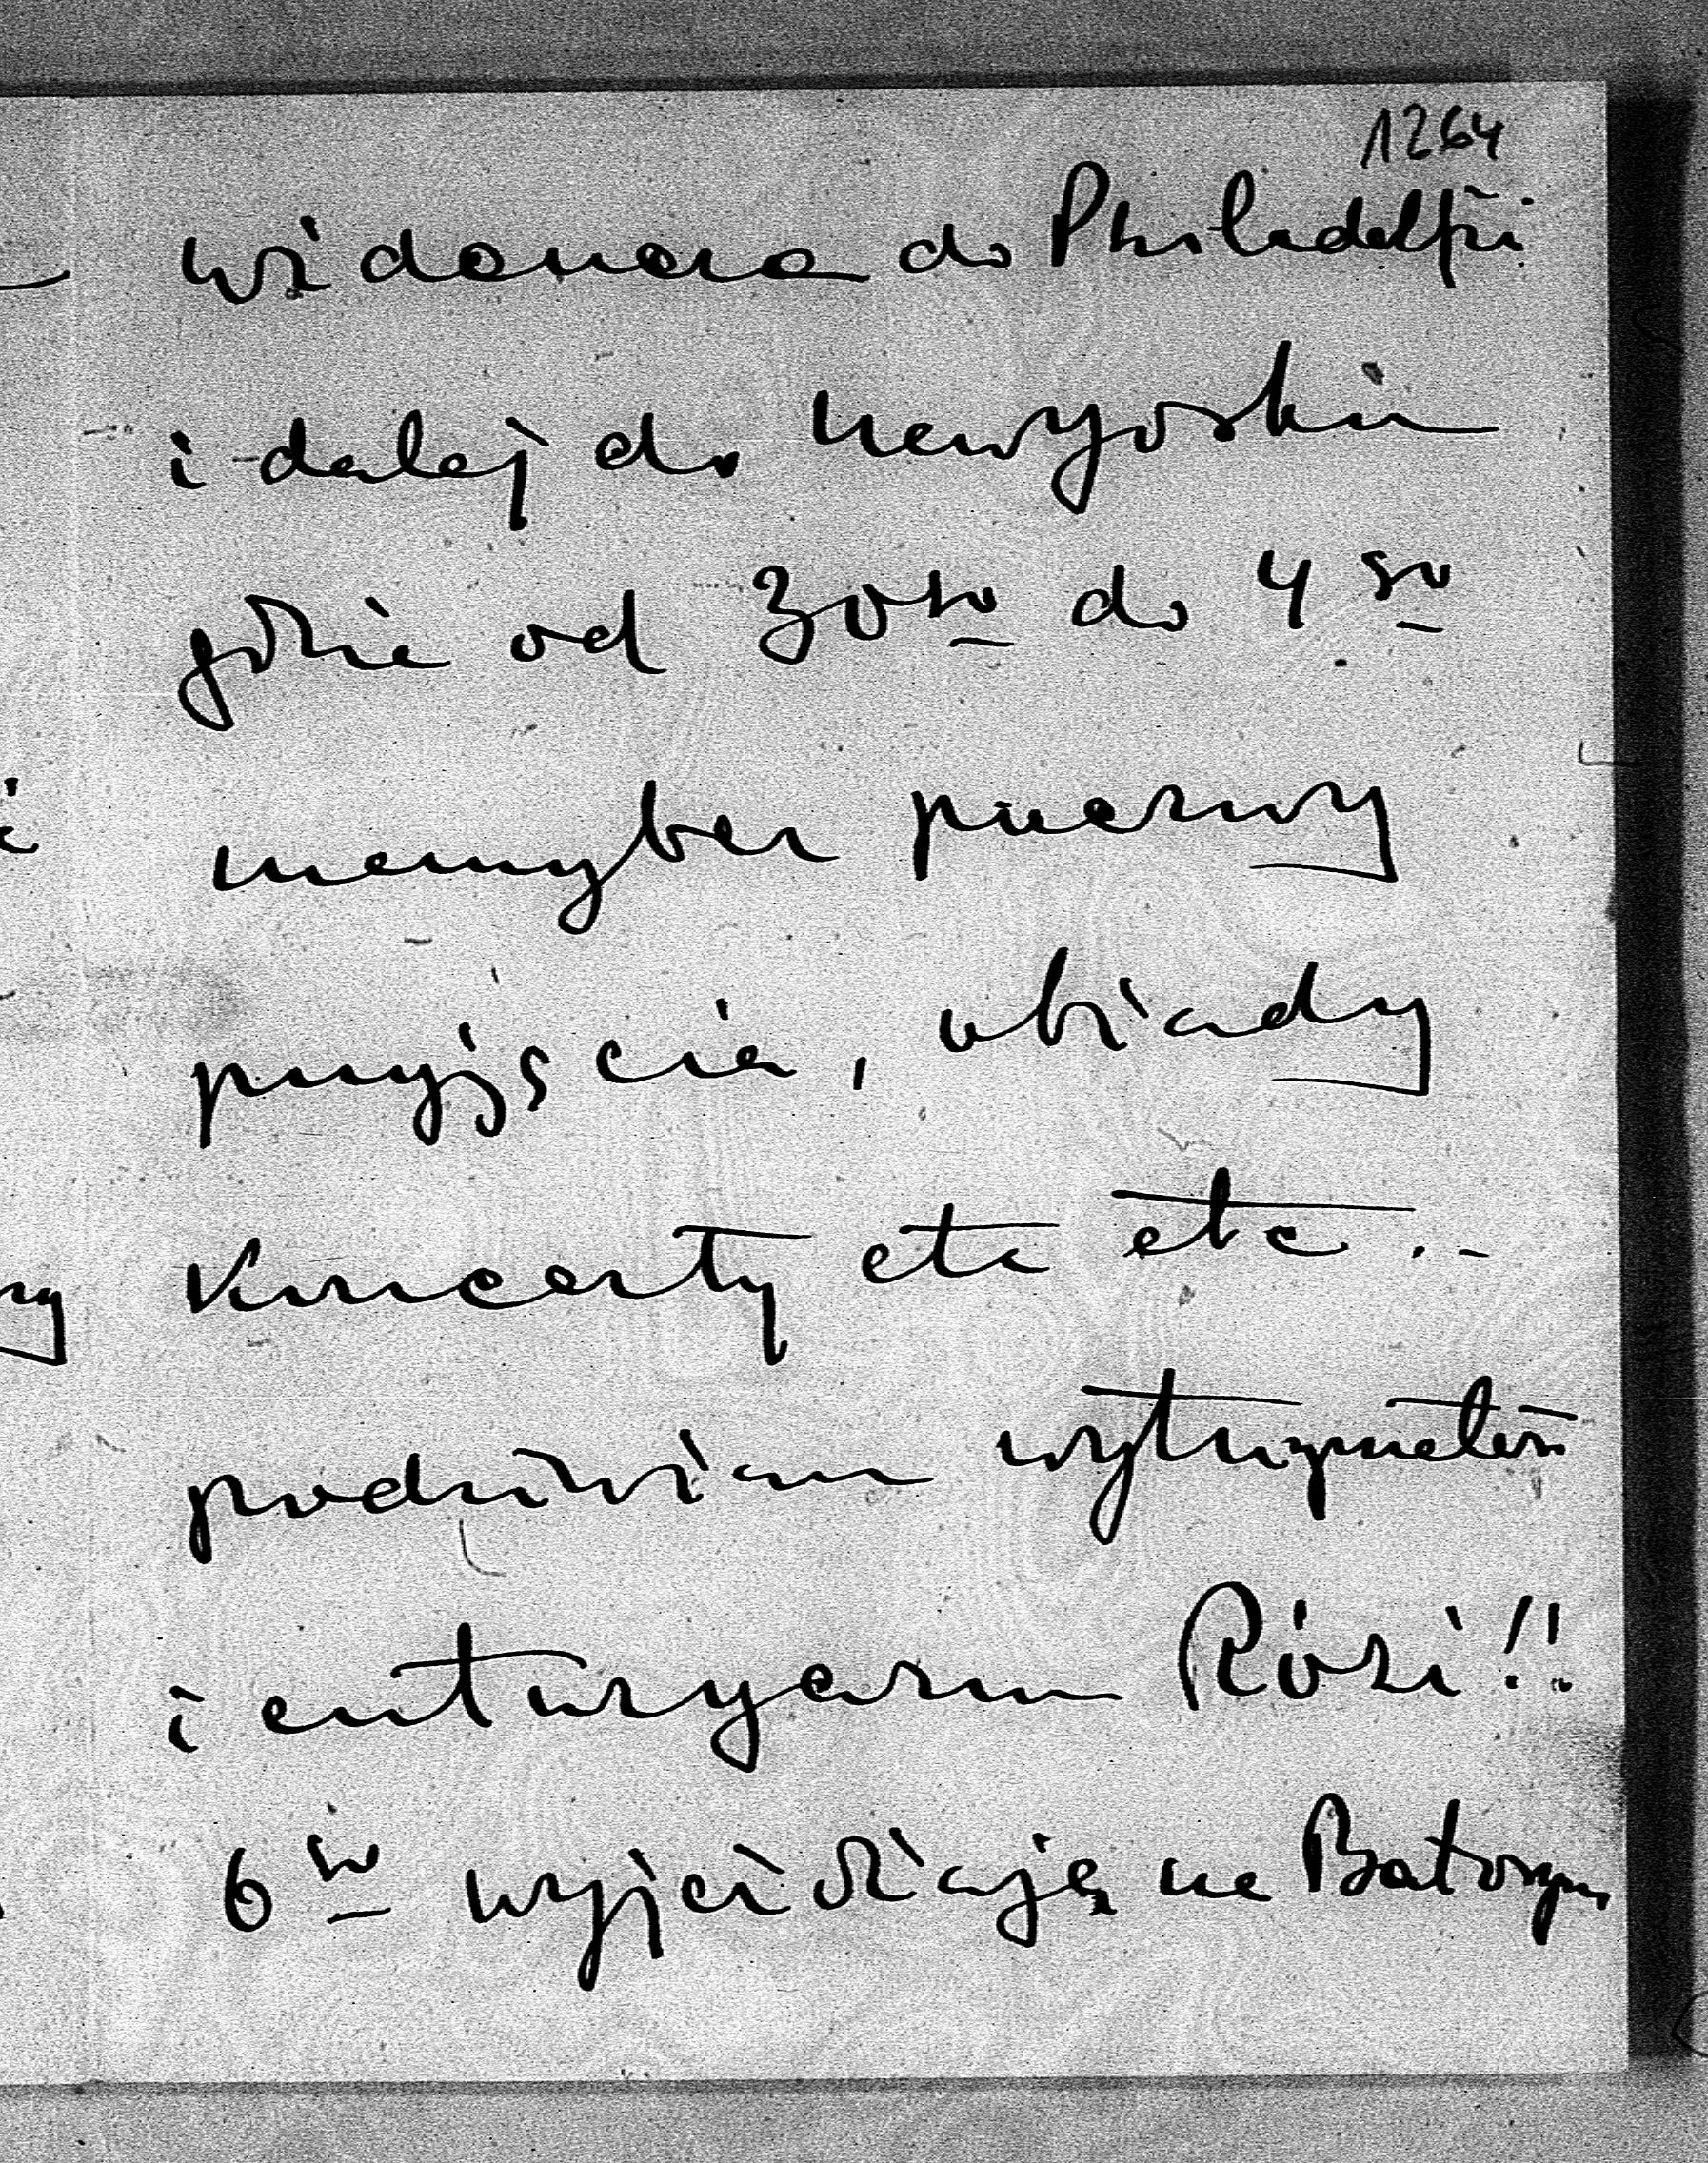 1264
widanova do Philadelfii
i dalej do Newyorku
gdzie od 30go do 4go
mamy bez przerwy
przyjścia, obiady
Koncerty etc etc ..
podziwiam wytrzymałość
i entuzyazm Rózi!!
6go wyjeżdżają na Batorym